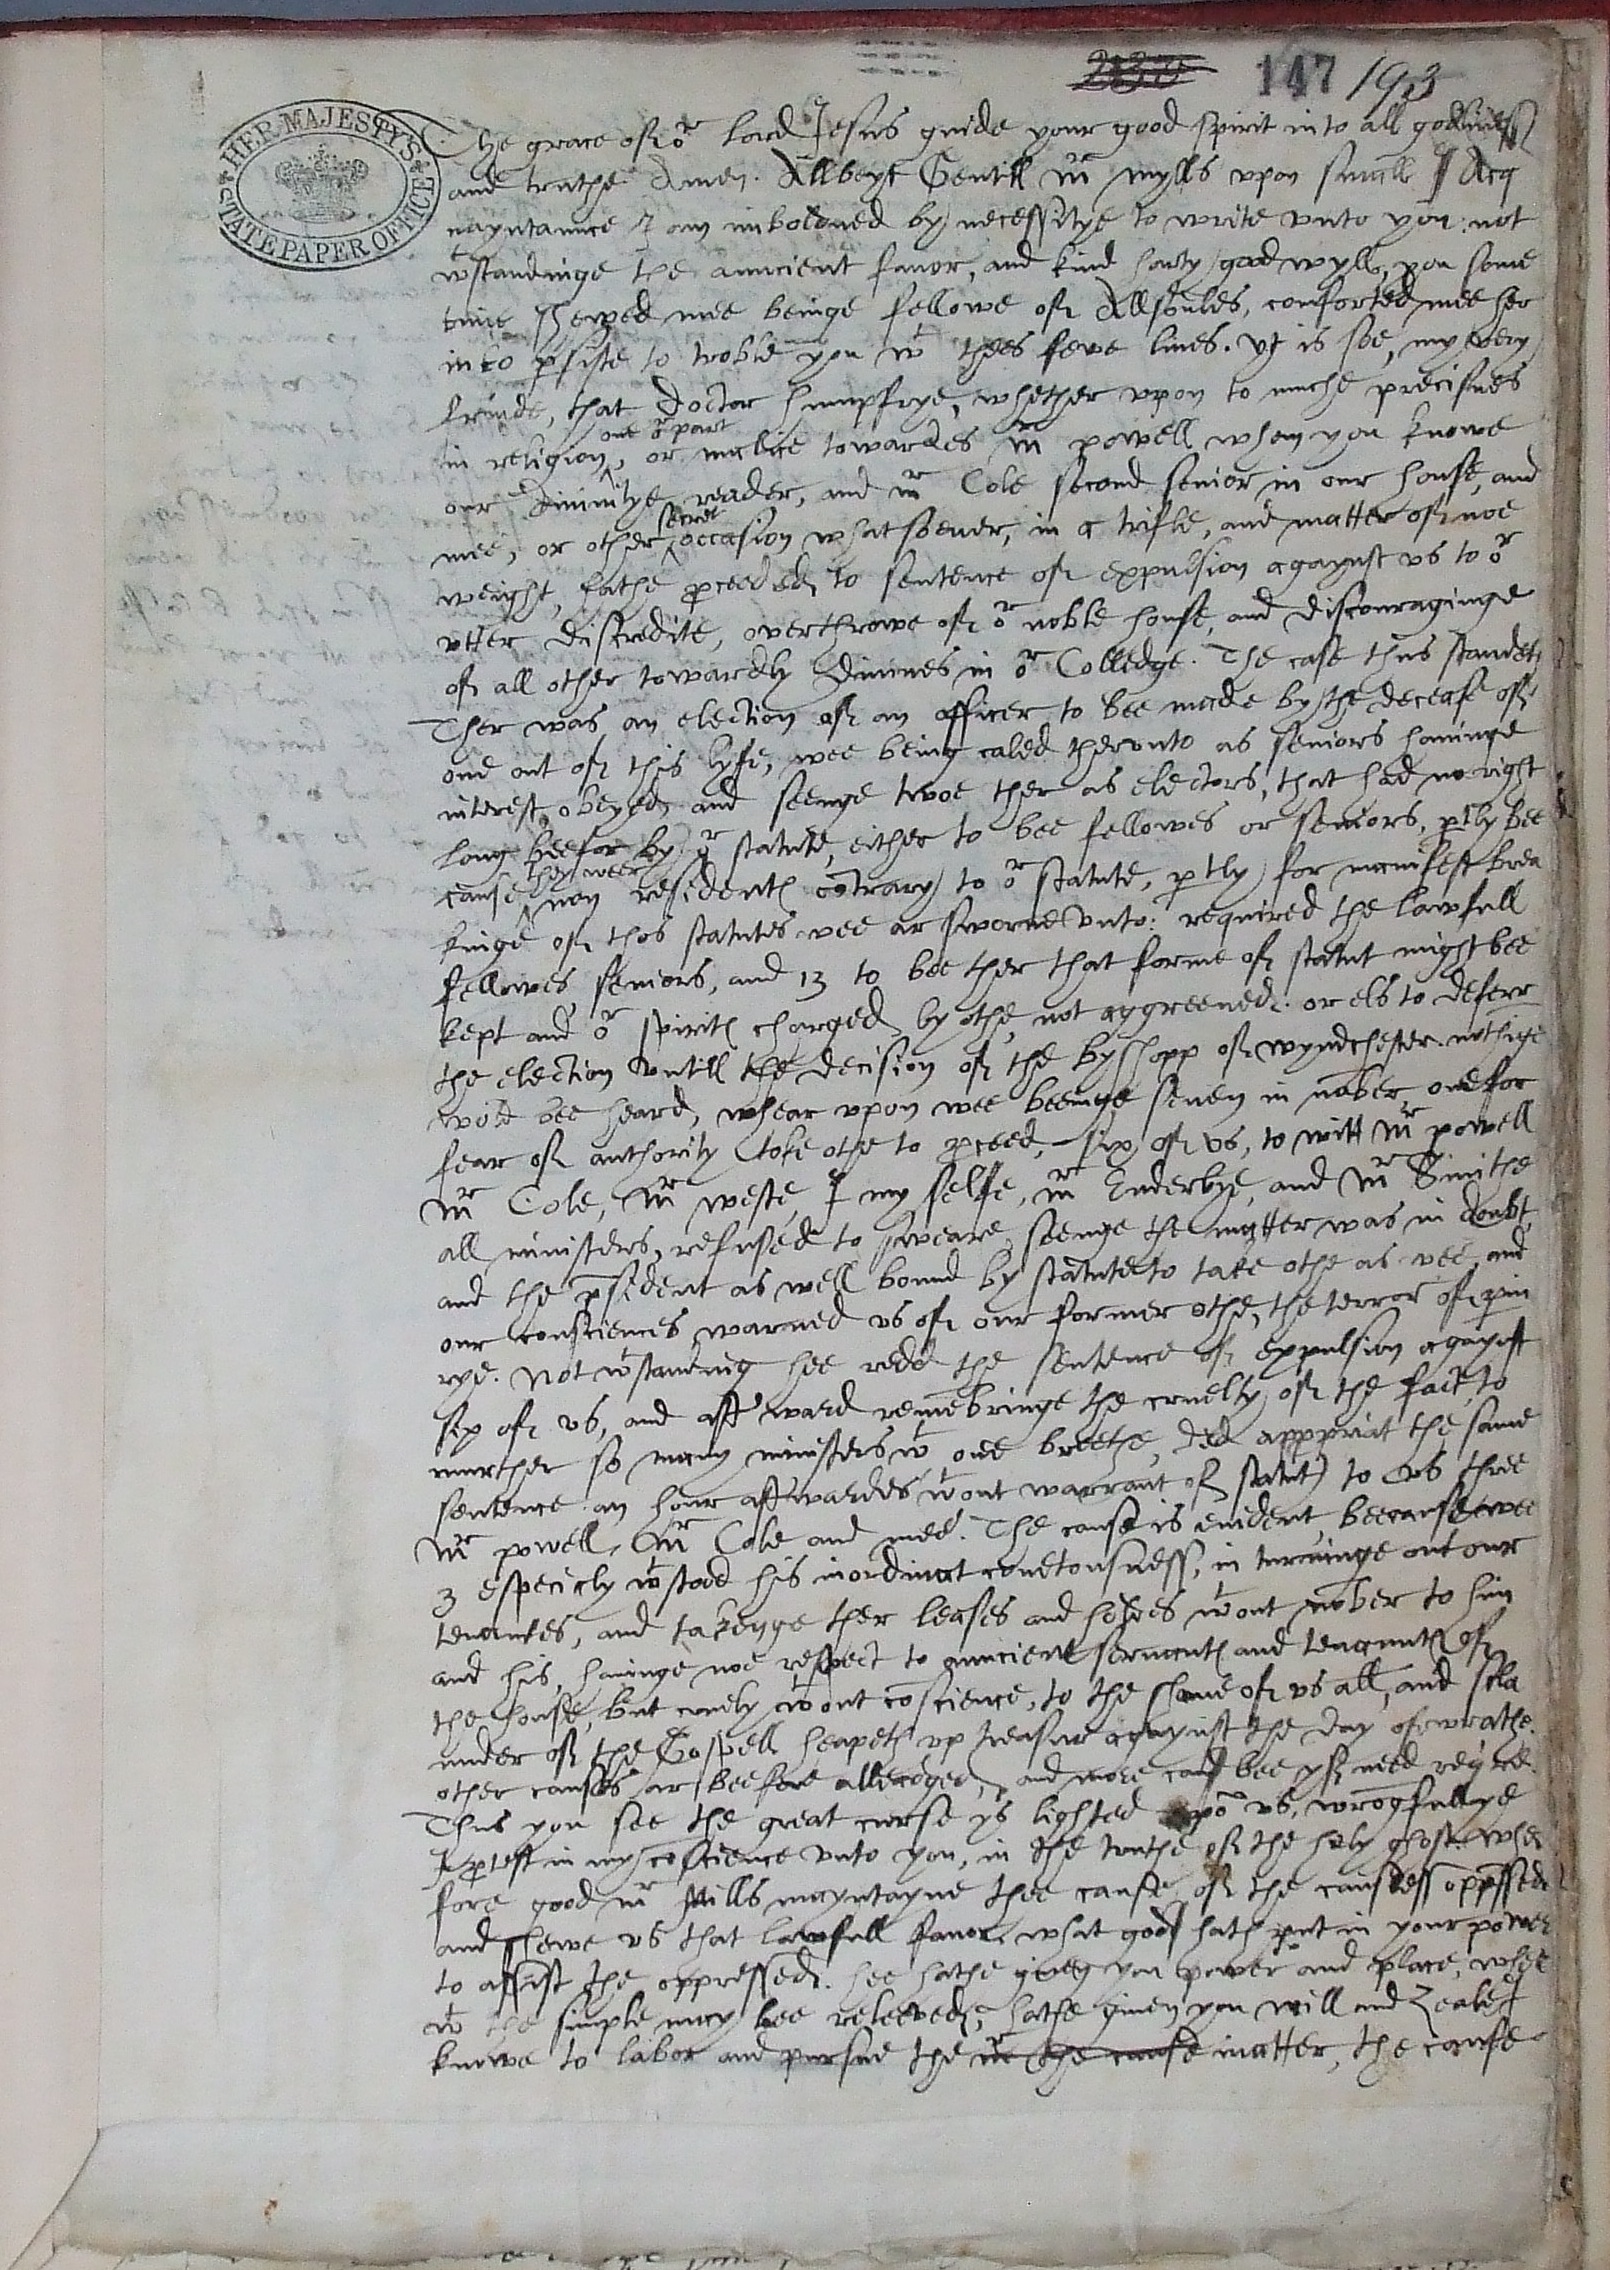 233 147 193
HER MAJESTY'S STATE PAPER OFFICE
The grace of or lord Jesus guide your good spirit into all godliness
and truthe Amen. Allbeyt Gentill mr mylls vpon small Acq
nayntaunce I am imboldned by necessitye to write vnto you: not
wtstandinge the auncient favor, and kind harty good wyll, you some
time shewed mee beinge fellowe of Allsoules, comforted mee her
into psiste to troble you wt thees fewe lines. yt is soe, my very
frinde, that Doctor humpfrye, whether vpon to muche precisnes
in religion one or part, or malice towardes mr powell whom you knowe
our divinitye reader, and mr Cole second senior in our house, and
mee, or other secret occasion whatsoever, in a trifle, and matter of noe
weight, hathe proceeded to sentence of expulsion agaynst vs to or
vtter discredite, overthrowe of or noble house, and discouraginge
of all other towardly Divines in or Colledge. The case thus standeth
Ther was an election of an officer to bee made by the decease of
one out of this lyfe, wee being caled thervnto as seniors havinge
interest obeyed, and seenge twoe ther as electors, that had no right
long beefor by or statute, either to bee fellowes or seniors, ptly bee
cause they weer non resident contrary to or statute, ptly for manifest brea
kinge of thos statutes wee ar sworne vnto: required the lawfull
fellowes, seniors, and 13 to bee ther that forme of statut might bee
kept and or spirits charged by othe, not aggreened. or els to deferr
the election vntill the decision of the byshopp of wyndchester. nothige
wold bee heard, whear vpon wee beeinge seven in nober, one for
fear of authority toke othe to proceed, six of vs, to witt mr powell
mr Cole, mr weste, I my selfe, mr Enderbye, and mr Smithe
all ministers, refused to sweare, seenge the matter was in doubt,
and the psident as well bound by statute to take othe as wee, and
our consciences warned vs of our former othe, the terror of piu
rye. Not wtstanding hee redd the sentence of expulsion agaynst
six of vs, and aftward remebringe the cruelty of the fact, to
murther so many ministers wt one breethe, ded appriat the same
sentence an hour aftwardes wtout warrant of statut) to vs three
mr powell, mr Cole and mee. The cause is evident, beecause wee
3 especialy wtstood his inordinat covetousness, in turninge out our
tenantes, and takenge ther leases and howses wtout nober to him
and his, havinge noe respect to auncient servants and tenaunts of
the house, but cruely wtout coscience, to the shame of vs all, and sla
under of the Gospell heapeth vp treasur agaynst the day of wrathe.
other causes ar beefore alleadged, and more can bee yf need reqire.
Thus you see the great curse ys lighted vpo vs, wrogfullye
I ptest in my coscience vnto you, in the truthe of the holy ghost. wher
fore good mr Mills mayntayne thee cause of the causeless oppssed
and shewe vs that lawfull favor, what god hath put in your power
to assist the oppressed. hee hathe given you power and place, wher
wt the simple may bee releeved, hathe given you will and zeale I
knowe to labor and pursue the mr the cause matter, the cause